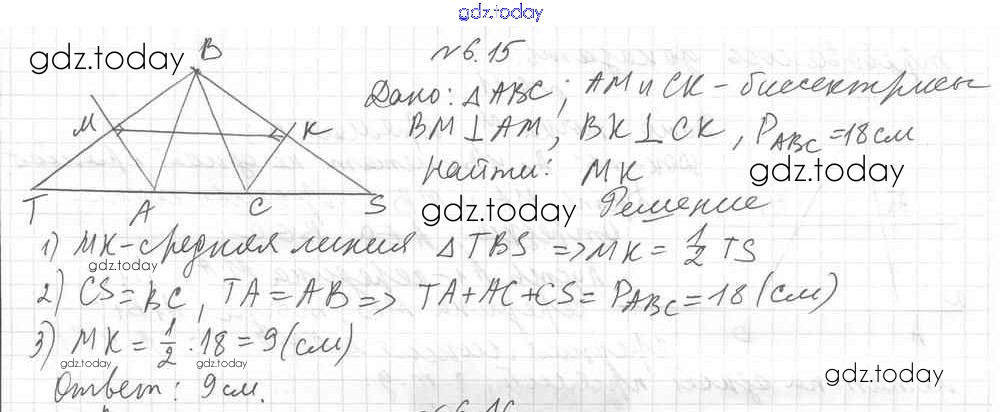 gdz.today
№6.15
gdz.today
B
Дано: △ABC; AM и CK - биссектрисы
M K
BM⊥AM, BK⊥CK, P_ABC = 18 см
Найти: MK
gdz.today
T A C S
gdz.today
Решение
1) MK - средняя линия △TBS => MK = 1/2 TS
gdz.today
2) CS = BC, TA = AB => TA + AC + CS = P_ABC = 18 (см)
3) MK = 1/2 · 18 = 9 (см)
gdz.today gdz.today
gdz.today
Ответ: 9 см.
№6.16